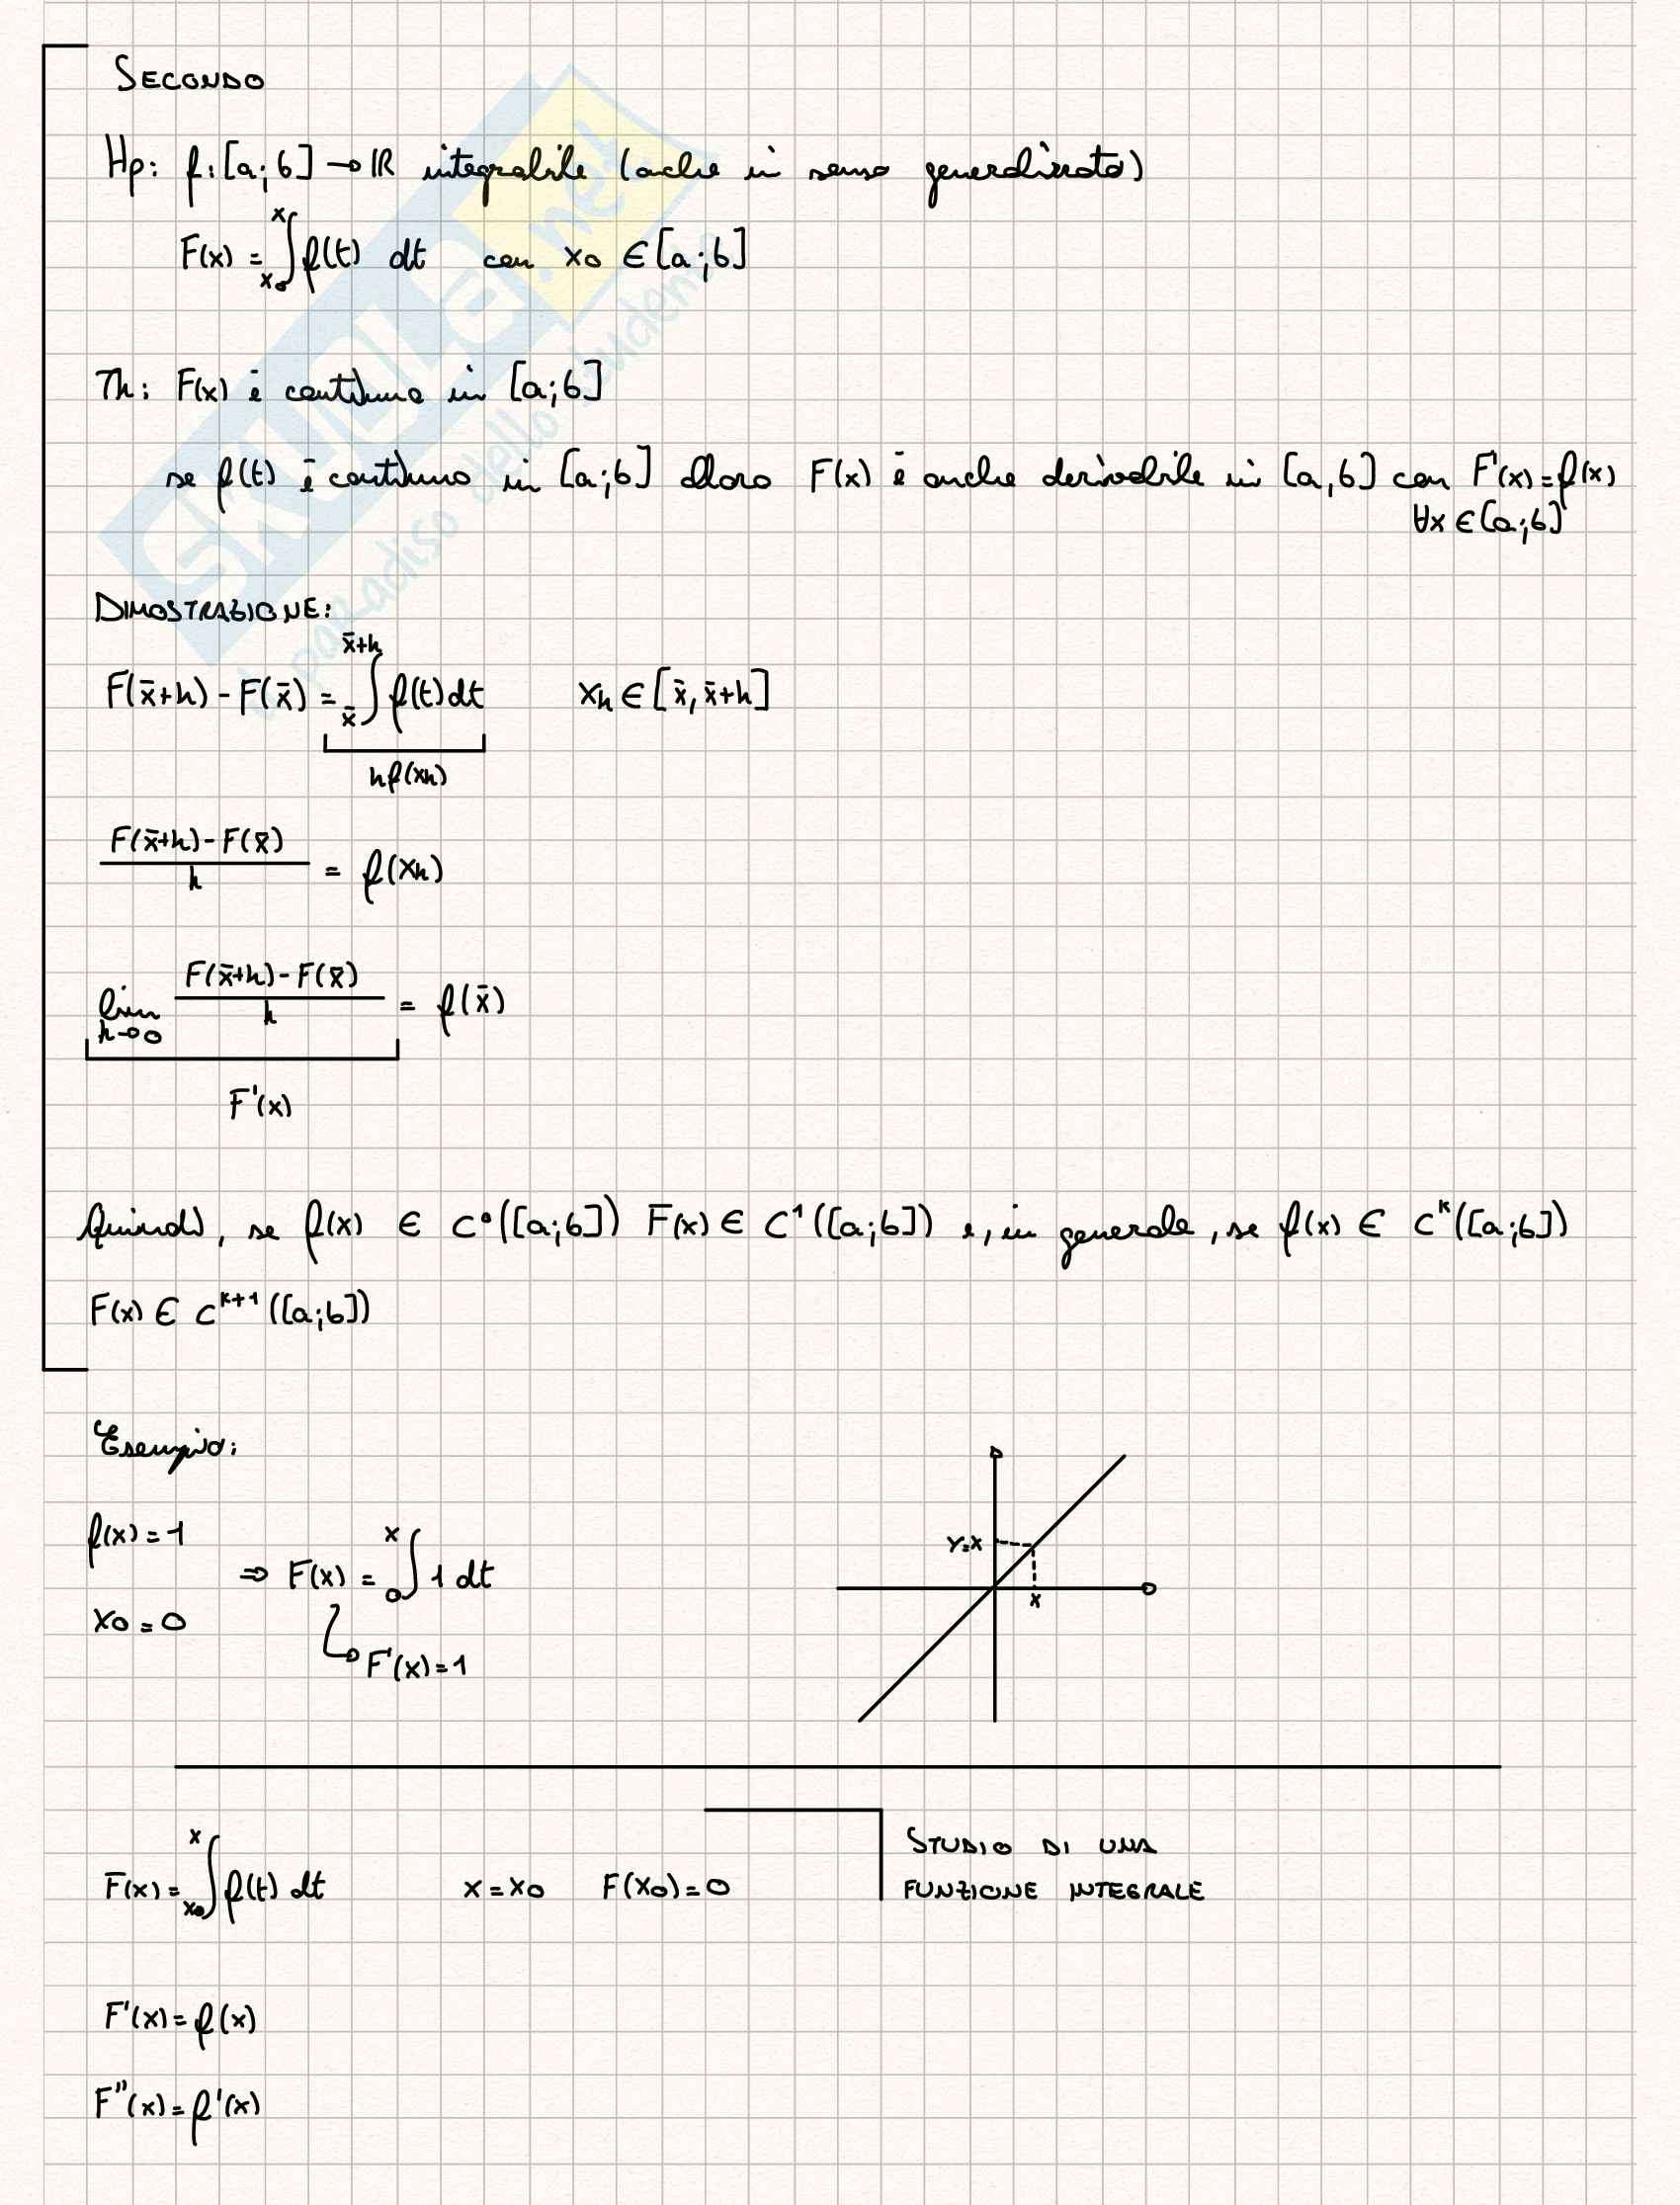 SECONDO
Hp: f: [a;b] → ℝ integrabile (anche in senso generalizzato)
F(x) = ∫_{x₀}^{x} f(t) dt con x₀ ∈ [a;b]
Th: F(x) è continua in [a;b]
se f(t) è continua in [a;b] allora F(x) è anche derivabile in [a,b] con F'(x) = f(x)
∀x ∈ [a;b]
DIMOSTRAZIONE:
F(x̄+h) - F(x̄) = ∫_{x̄}^{x̄+h} f(t) dt xₕ ∈ [x̄, x̄+h]
h f(xₕ)
(F(x̄+h) - F(x̄))/h = f(xₕ)
lim_{h→0} (F(x̄+h) - F(x̄))/h = f(x̄)
F'(x)
Quindi, se f(x) ∈ C⁰([a;b]) F(x) ∈ C¹([a;b]) e, in generale, se f(x) ∈ Cᵏ([a;b])
F(x) ∈ Cᵏ⁺¹([a;b])
Esempio:
f(x) = 1
⇒ F(x) = ∫_{0}^{x} 1 dt
x₀ = 0
F'(x) = 1
Y=X
X
F(x) = ∫_{x₀}^{x} f(t) dt x = x₀ F(x₀) = 0
STUDIO DI UNA
FUNZIONE INTEGRALE
F'(x) = f(x)
F''(x) = f'(x)
SKUOLA.net
il paradiso dello studente